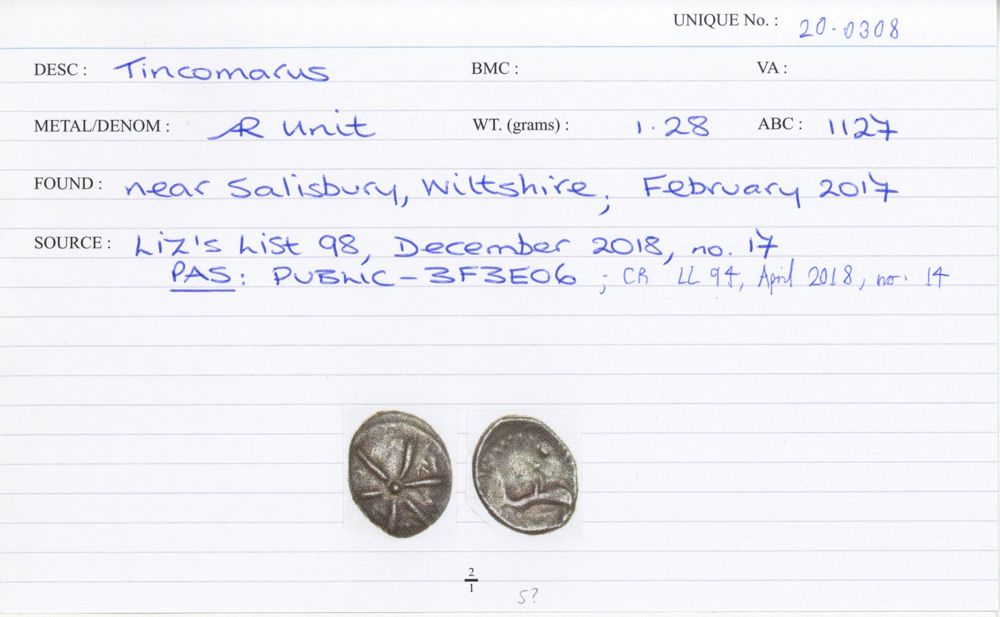 UNIQUE No. : 20-0308
DESC : Tincomarus BMC : VA :
METAL/DENOM : AR unit WT. (grams) : 1.28 ABC : 1127
FOUND : near Salisbury, Wiltshire, February 2017
SOURCE : Liz's List 98, December 2018, no. 17
PAS: PUBLIC-3F3E06 ; CR LL 94, April 2018, no. 14
2
1
S?